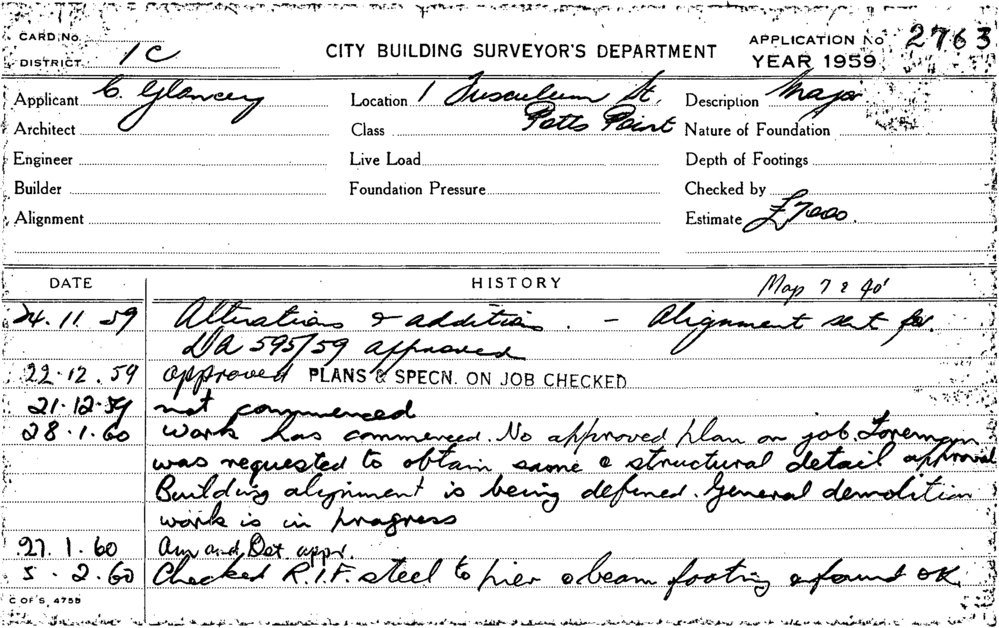 CARD No.
DISTRICT 1C
CITY BUILDING SURVEYOR'S DEPARTMENT
APPLICATION No 2763
YEAR 1959
Applicant C. Glancey
Location 1 Tusculum St. Potts Point
Description Major
Architect
Class
Nature of Foundation
Engineer
Live Load
Depth of Footings
Builder
Foundation Pressure
Checked by
Alignment
Estimate £7000.
DATE HISTORY Map 7 & 40'
24.11.59 Alterations & additions. - Alignment sent for.
DA 595/59 approved
22.12.59 approved PLANS & SPECN. ON JOB CHECKED
21.12.59 not commenced
28.1.60 Work has commenced. No approved plan on job. Foreman
was requested to obtain same & structural detail approval
Building alignment is being defined. General demolition
work is in progress
27.1.60 Am and Det. appr.
5.2.60 Checked R.I.F. steel to pier & beam footing & found OK
C OF S, 4755